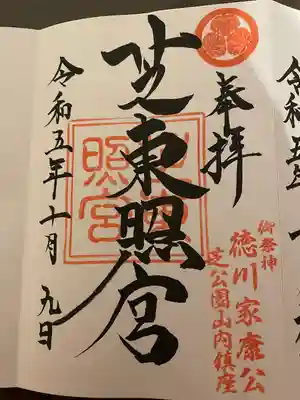 奉拝
御祭神
徳川家康公
芝公園山内鎮座
芝東照宮
令和五年十一月九日
令和五年十